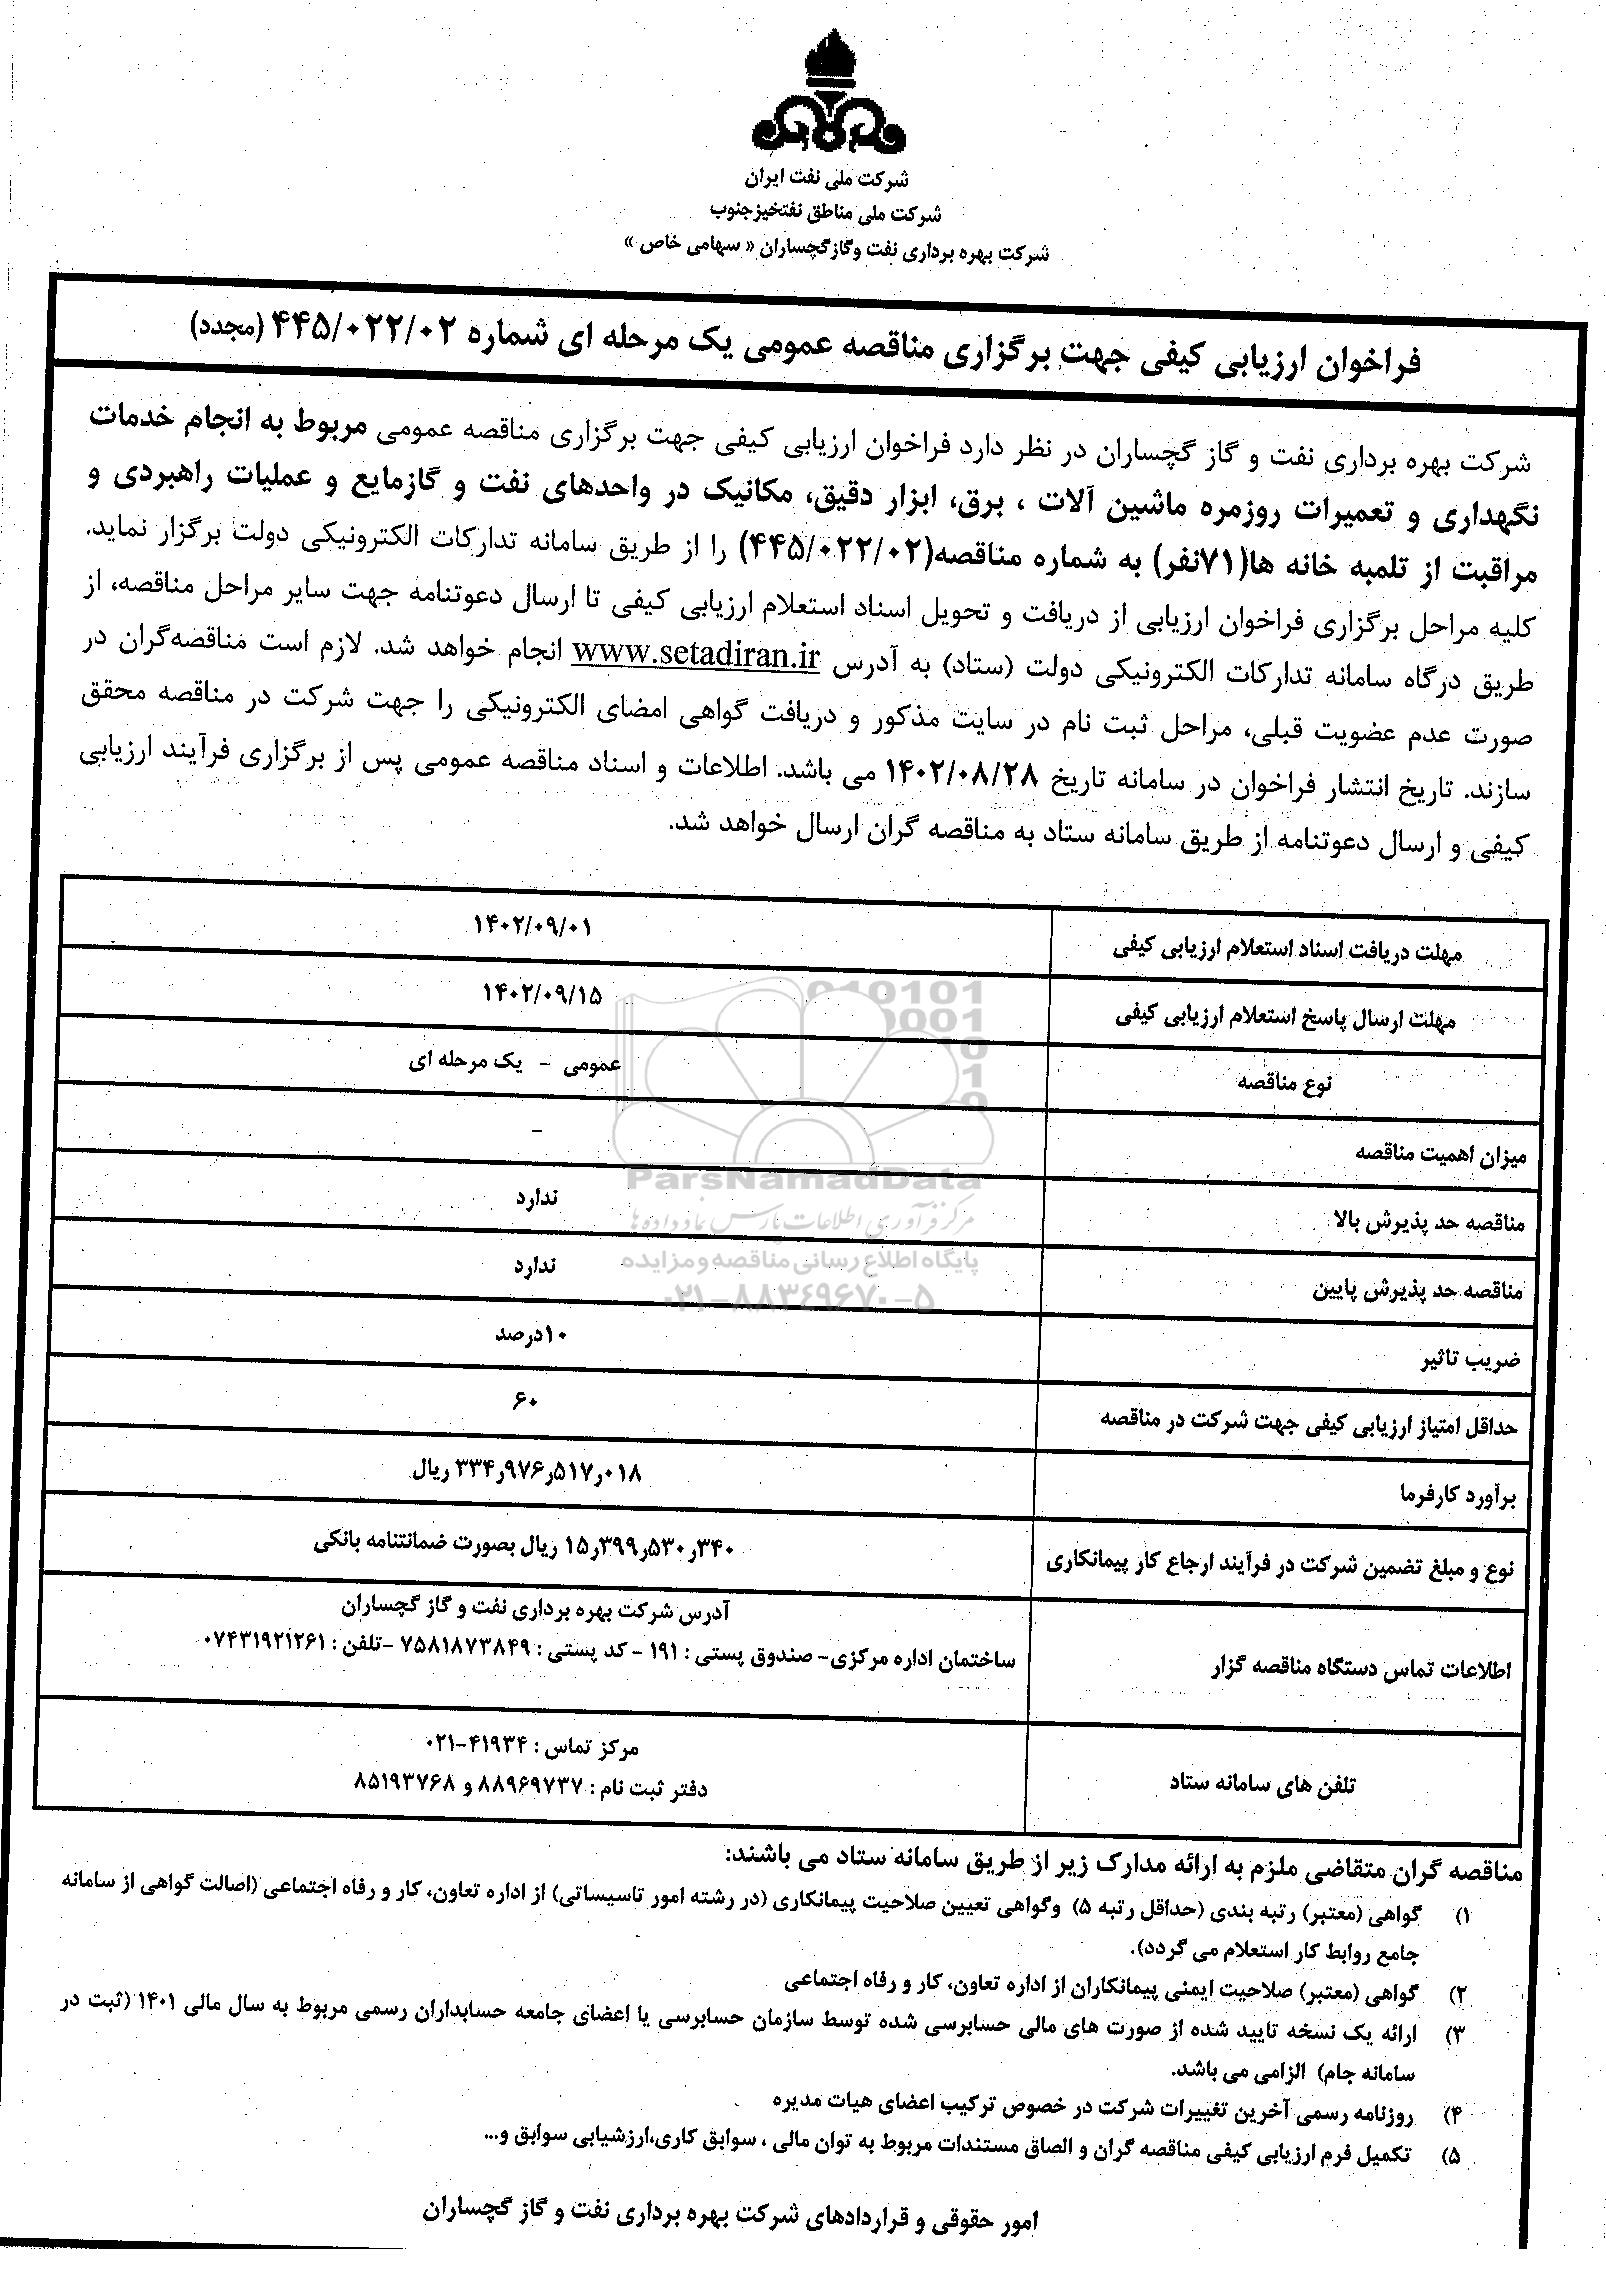 شرکت ملی نفت ایران
شرکت ملی مناطق نفتخیزجنوب
شرکت بهره برداری نفت وگازگچساران « سهامی خاص »
فراخوان ارزیابی کیفی جهت برگزاری مناقصه عمومی یک مرحله ای شماره ۴۴۵/۰۲۲/۰۲ (مجدد)
شرکت بهره برداری نفت و گاز گچساران در نظر دارد فراخوان ارزیابی کیفی جهت برگزاری مناقصه عمومی مربوط به انجام خدمات
نگهداری و تعمیرات روزمره ماشین آلات ، برق، ابزار دقیق، مکانیک در واحدهای نفت و گازمایع و عملیات راهبردی و
مراقبت از تلمبه خانه ها(۷۱نفر) به شماره مناقصه(۴۴۵/۰۲۲/۰۲) را از طریق سامانه تدارکات الکترونیکی دولت برگزار نماید.
کلیه مراحل برگزاری فراخوان ارزیابی از دریافت و تحویل اسناد استعلام ارزیابی کیفی تا ارسال دعوتنامه جهت سایر مراحل مناقصه، از
طریق درگاه سامانه تدارکات الکترونیکی دولت (ستاد) به آدرس www.setadiran.ir انجام خواهد شد. لازم است مناقصه‌گران در
صورت عدم عضویت قبلی، مراحل ثبت نام در سایت مذکور و دریافت گواهی امضای الکترونیکی را جهت شرکت در مناقصه محقق
سازند. تاریخ انتشار فراخوان در سامانه تاریخ ۱۴۰۲/۰۸/۲۸ می باشد. اطلاعات و اسناد مناقصه عمومی پس از برگزاری فرآیند ارزیابی
کیفی و ارسال دعوتنامه از طریق سامانه ستاد به مناقصه گران ارسال خواهد شد.
مهلت دریافت اسناد استعلام ارزیابی کیفی ۱۴۰۲/۰۹/۰۱
مهلت ارسال پاسخ استعلام ارزیابی کیفی ۱۴۰۲/۰۹/۱۵
نوع مناقصه عمومی - یک مرحله ای
میزان اهمیت مناقصه -
مناقصه حد پذیرش بالا ندارد
مناقصه حد پذیرش پایین ندارد
ضریب تاثیر ۱۰درصد
حداقل امتیاز ارزیابی کیفی جهت شرکت در مناقصه ۶۰
برآورد کارفرما ۳۳۴ر۹۷۶ر۵۱۷ر۰۱۸ ریال
نوع و مبلغ تضمین شرکت در فرآیند ارجاع کار پیمانکاری ۱۵ر۳۹۹ر۵۳۰ر۳۴۰ ریال بصورت ضمانتنامه بانکی
اطلاعات تماس دستگاه مناقصه گزار
آدرس شرکت بهره برداری نفت و گاز گچساران
ساختمان اداره مرکزی- صندوق پستی : ۱۹۱ - کد پستی : ۷۵۸۱۸۷۳۸۴۹ -تلفن : ۰۷۴۳۱۹۲۱۲۶۱
تلفن های سامانه ستاد
مرکز تماس : ۴۱۹۳۴-۰۲۱
دفتر ثبت نام : ۸۸۹۶۹۷۳۷ و ۸۵۱۹۳۷۶۸
مناقصه گران متقاضی ملزم به ارائه مدارک زیر از طریق سامانه ستاد می باشند:
۱) گواهی (معتبر) رتبه بندی (حداقل رتبه ۵) وگواهی تعیین صلاحیت پیمانکاری (در رشته امور تاسیساتی) از اداره تعاون، کار و رفاه اجتماعی (اصالت گواهی از سامانه
جامع روابط کار استعلام می گردد).
۲) گواهی (معتبر) صلاحیت ایمنی پیمانکاران از اداره تعاون، کار و رفاه اجتماعی
۳) ارائه یک نسخه تایید شده از صورت های مالی حسابرسی شده توسط سازمان حسابرسی یا اعضای جامعه حسابداران رسمی مربوط به سال مالی ۱۴۰۱ (ثبت در
سامانه جام) الزامی می باشد.
۴) روزنامه رسمی آخرین تغییرات شرکت در خصوص ترکیب اعضای هیات مدیره
۵) تکمیل فرم ارزیابی کیفی مناقصه گران و الصاق مستندات مربوط به توان مالی ، سوابق کاری،ارزشیابی سوابق و...
امور حقوقی و قراردادهای شرکت بهره برداری نفت و گاز گچساران
ParsNamadData
مرکز فرآوری اطلاعات پارس نماد داده ها
پایگاه اطلاع رسانی مناقصه و مزایده
۰۲۱-۸۸۳۴۹۶۷۰-۵